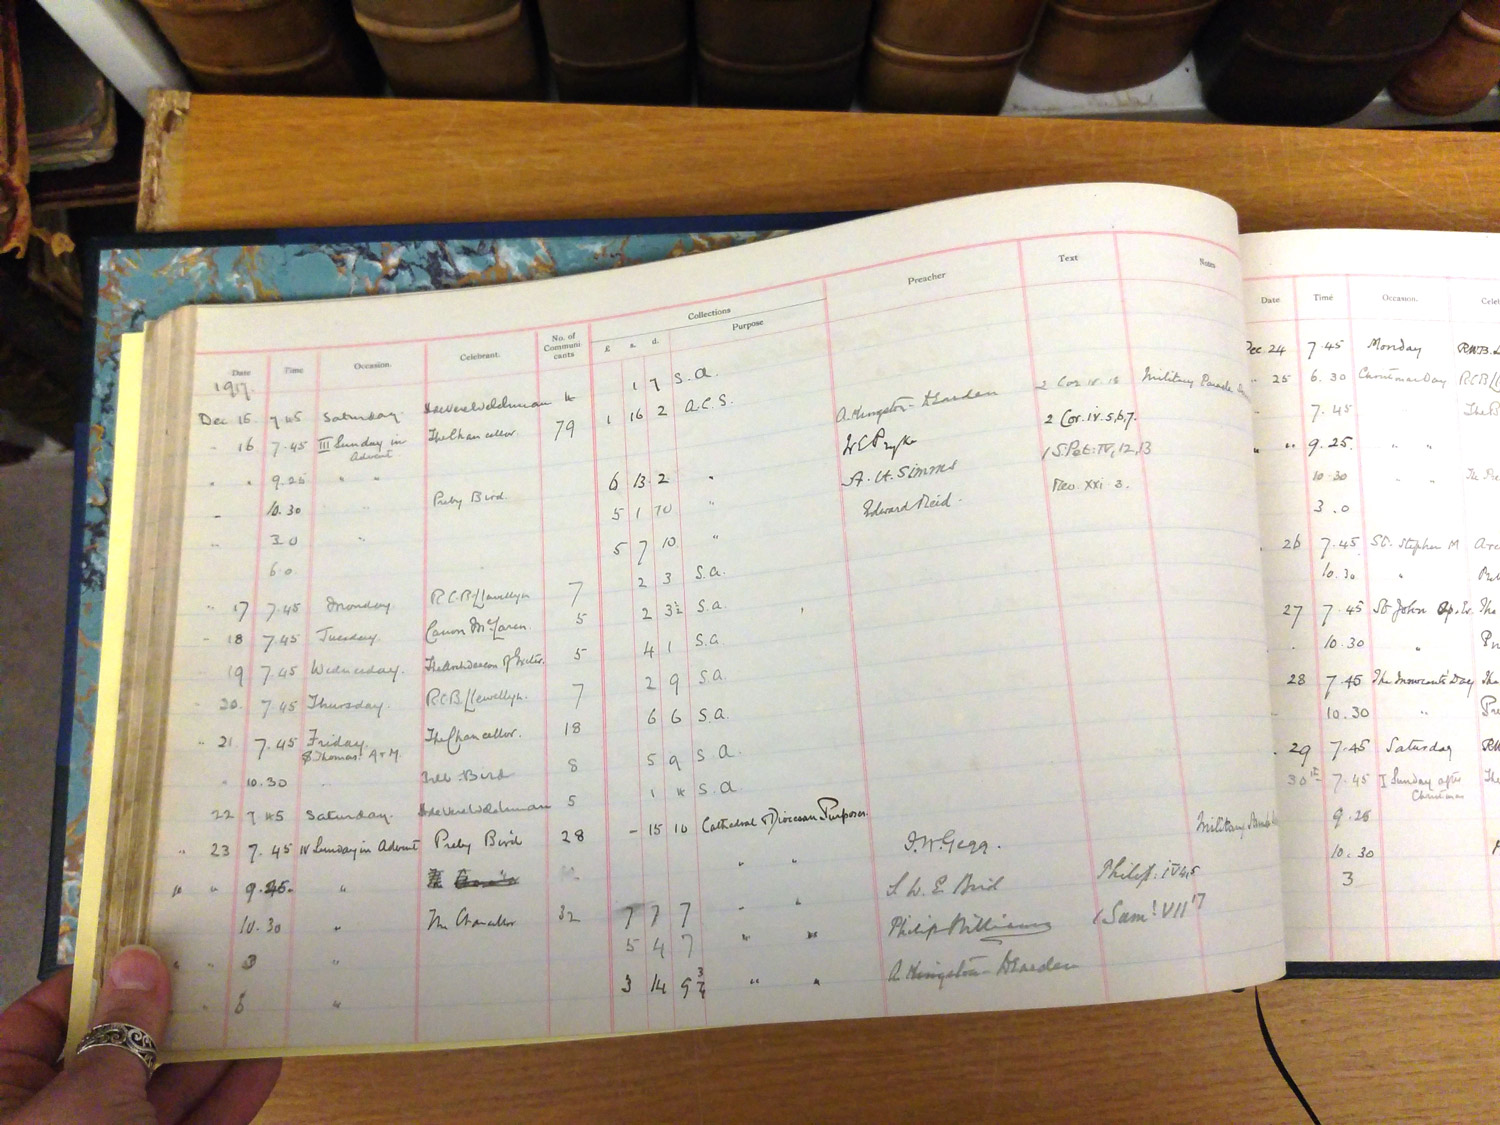 Date Time Occasion. Celebrant. No. of Communicants Collections £ s. d. Purpose Preacher Text Notes
1917.
Dec 15 7.45 Saturday 4 1 7 S.a.
" 16 7.45 III Sunday in Advent The Chancellor 79 1 16 2 A.C.S. A. Kingston 2 Cor. iv. Military Parade
" " 9.25 " " W E Pryke 2 Cor. iv. 5,6,7.
10.30 " Preby Bird. 6 13 2 " A. H. Simms 1 S. Pet: IV, 12, 13
" 3.0 " 5 1 10 " Edward Reid. Rev. xxi 3.
6.0. 5 7 10 "
" 17 7.45 Monday R.C.B. Llewellyn 7 2 3 S.a.
" 18 7.45 Tuesday. Canon McLaren. 5 2 3½ S.a.
" 19 7.45 Wednesday. The Archdeacon of Exeter. 5 4 1 S.a.
" 20. 7.45 Thursday. R.C.B. Llewellyn. 7 2 9 S.a.
" 21 7.45 Friday. S. Thomas. A & M. The Chancellor. 18 6 6 S.a.
" 10.30 Bird 8 5 9 S.a.
22 7.45 Saturday. 5 1 4 S.a
" 23 7.45 IV Sunday in Advent Preby Bird 28 - 15 10 Cathedral & Diocesan Purposes
" " 9.45. " " " J.W. Gegg. Military
10.30 " The Chancellor 32 7 7 7 " " Bird Philip: iv 4,5
" " 3 " 5 4 7 " " Philip Williams 1 Saml VII 17
" 6 " 3 14 9¾ " " A Kingston
Date Time Occasion. Cele
Dec. 24 7.45 Monday
" 25 6.30 Christmas Day
7.45 " The
" " 9.25. " "
10.30 " "
3.0
26 7.45 St. Stephen M
10.30 "
27 7.45 St John The
10.30 "
28 7.45 The Innocents' Day The
10.30 "
29 7.45 Saturday
30th 7.45 I Sunday after Christmas The
9.25
10.30
3